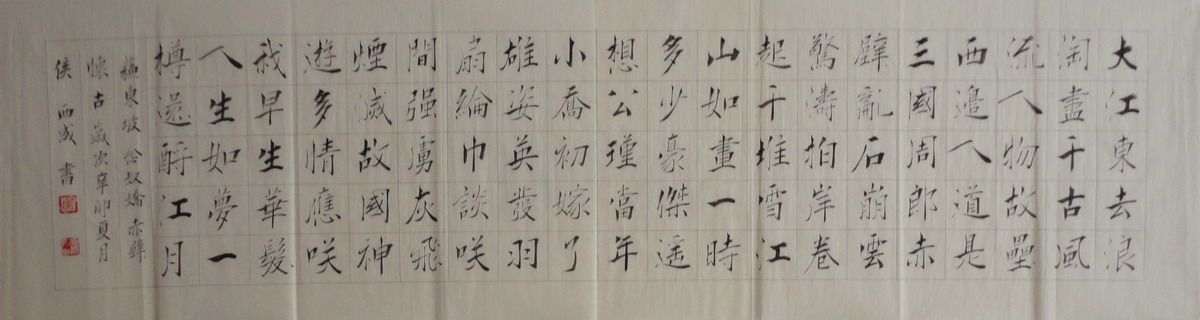 大江東去浪
淘盡千古風
流人物故壘
西邉人道是
三國周郎赤
壁亂石崩雲
驚濤拍岸卷
起千堆雪江
山如畫一時
多少豪傑遥
想公瑾當年
小喬初嫁了
雄姿英發羽
扇綸巾談咲
間强虜灰飛
煙滅故國神
遊多情應咲
我早生華髮
人生如夢一
樽還酹江月
蘇東坡念奴嬌赤壁
懷古歲次辛卯夏月
侯西成書